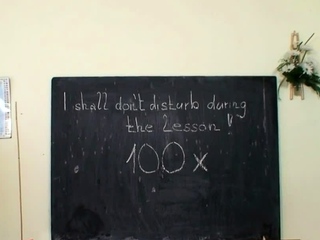 I shall don't disturb during
the Lesson !
100 x